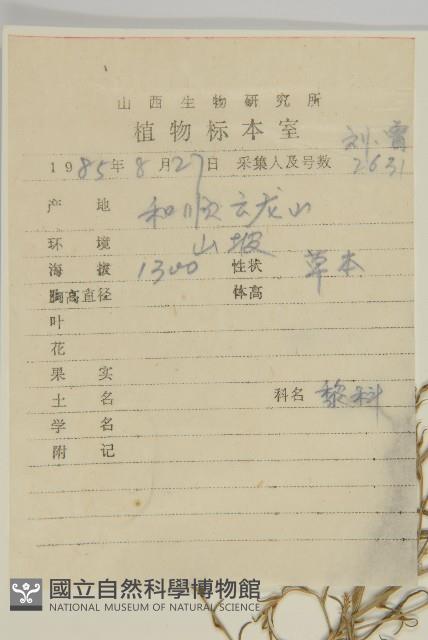 山西生物研究所
植物标本室
1985年8月27日 采集人及号数 刘 2631
产 地 和顺云龙山
环 境 山坡
海 拔 1300 性状 草本
胸高直径 体高
叶
花
果 实
土 名 科名 黎科
学 名
附 记
國立自然科學博物館
NATIONAL MUSEUM OF NATURAL SCIENCE